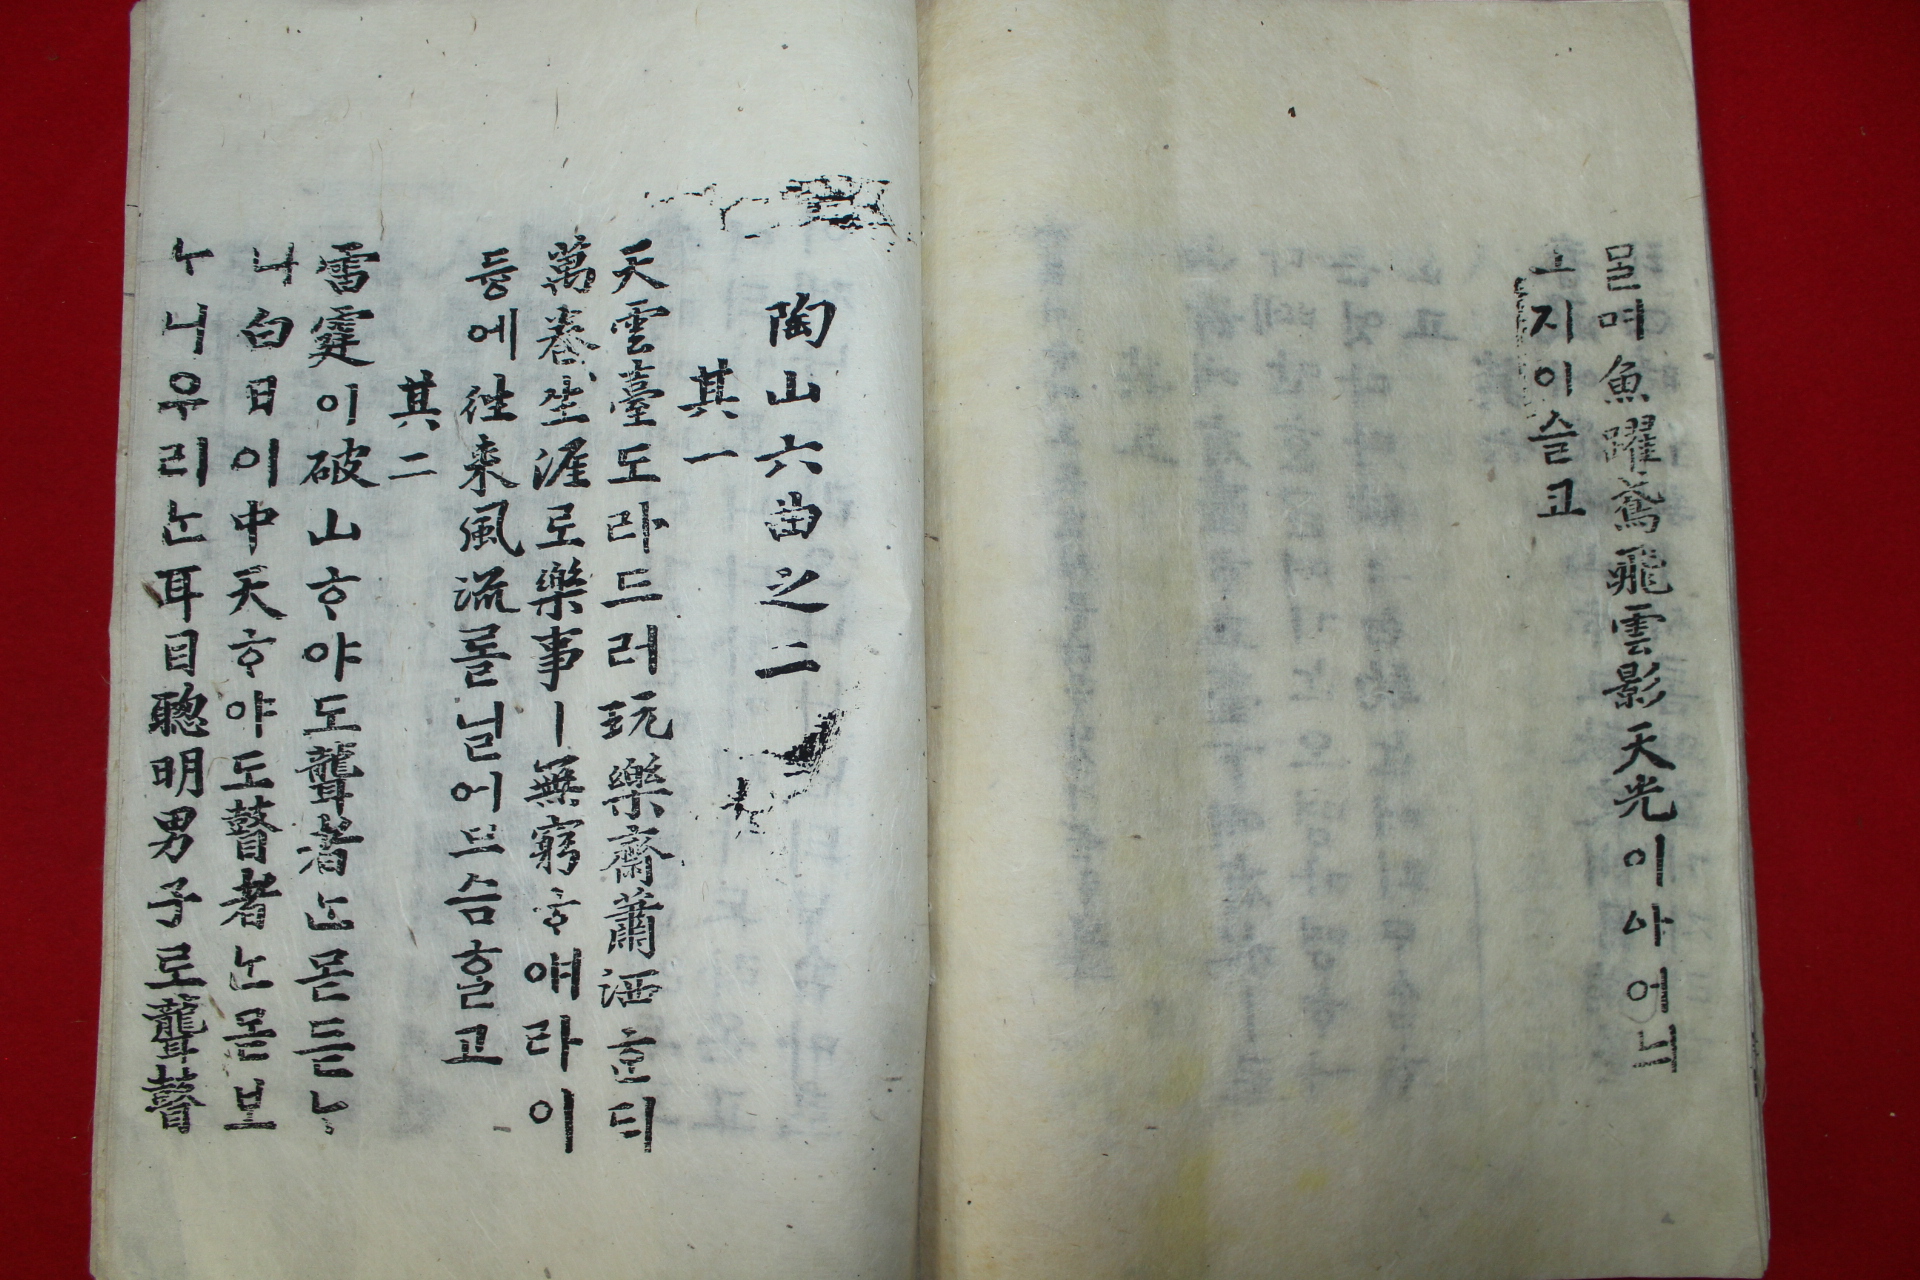 ᄆᆞᆯ며魚躍鳶飛雲影天光이아어늬
그지이슬고
陶山六曲之二
其一
天雲臺도라드러玩樂齋蕭洒ᄒᆞᆫᄃᆡ
萬卷生涯로樂事ㅣ無窮ᄒᆞ얘라이
듕에往來風流ᄅᆞᆯ닐어므슴ᄒᆞᆯ고
其二
雷霆이破山ᄒᆞ야도聾者ᄂᆞᆫ몯듣ᄂᆞ
니白日이中天ᄒᆞ야도瞽者ᄂᆞᆫ몯보
ᄂᆞ니우리ᄂᆞᆫ耳目聰明男子로聾瞽